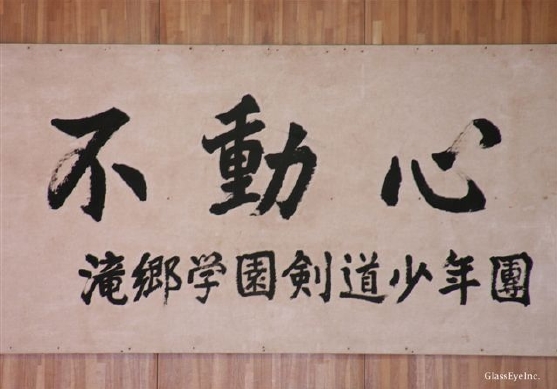 不動心
滝郷学園剣道少年團
GlassEyeInc.